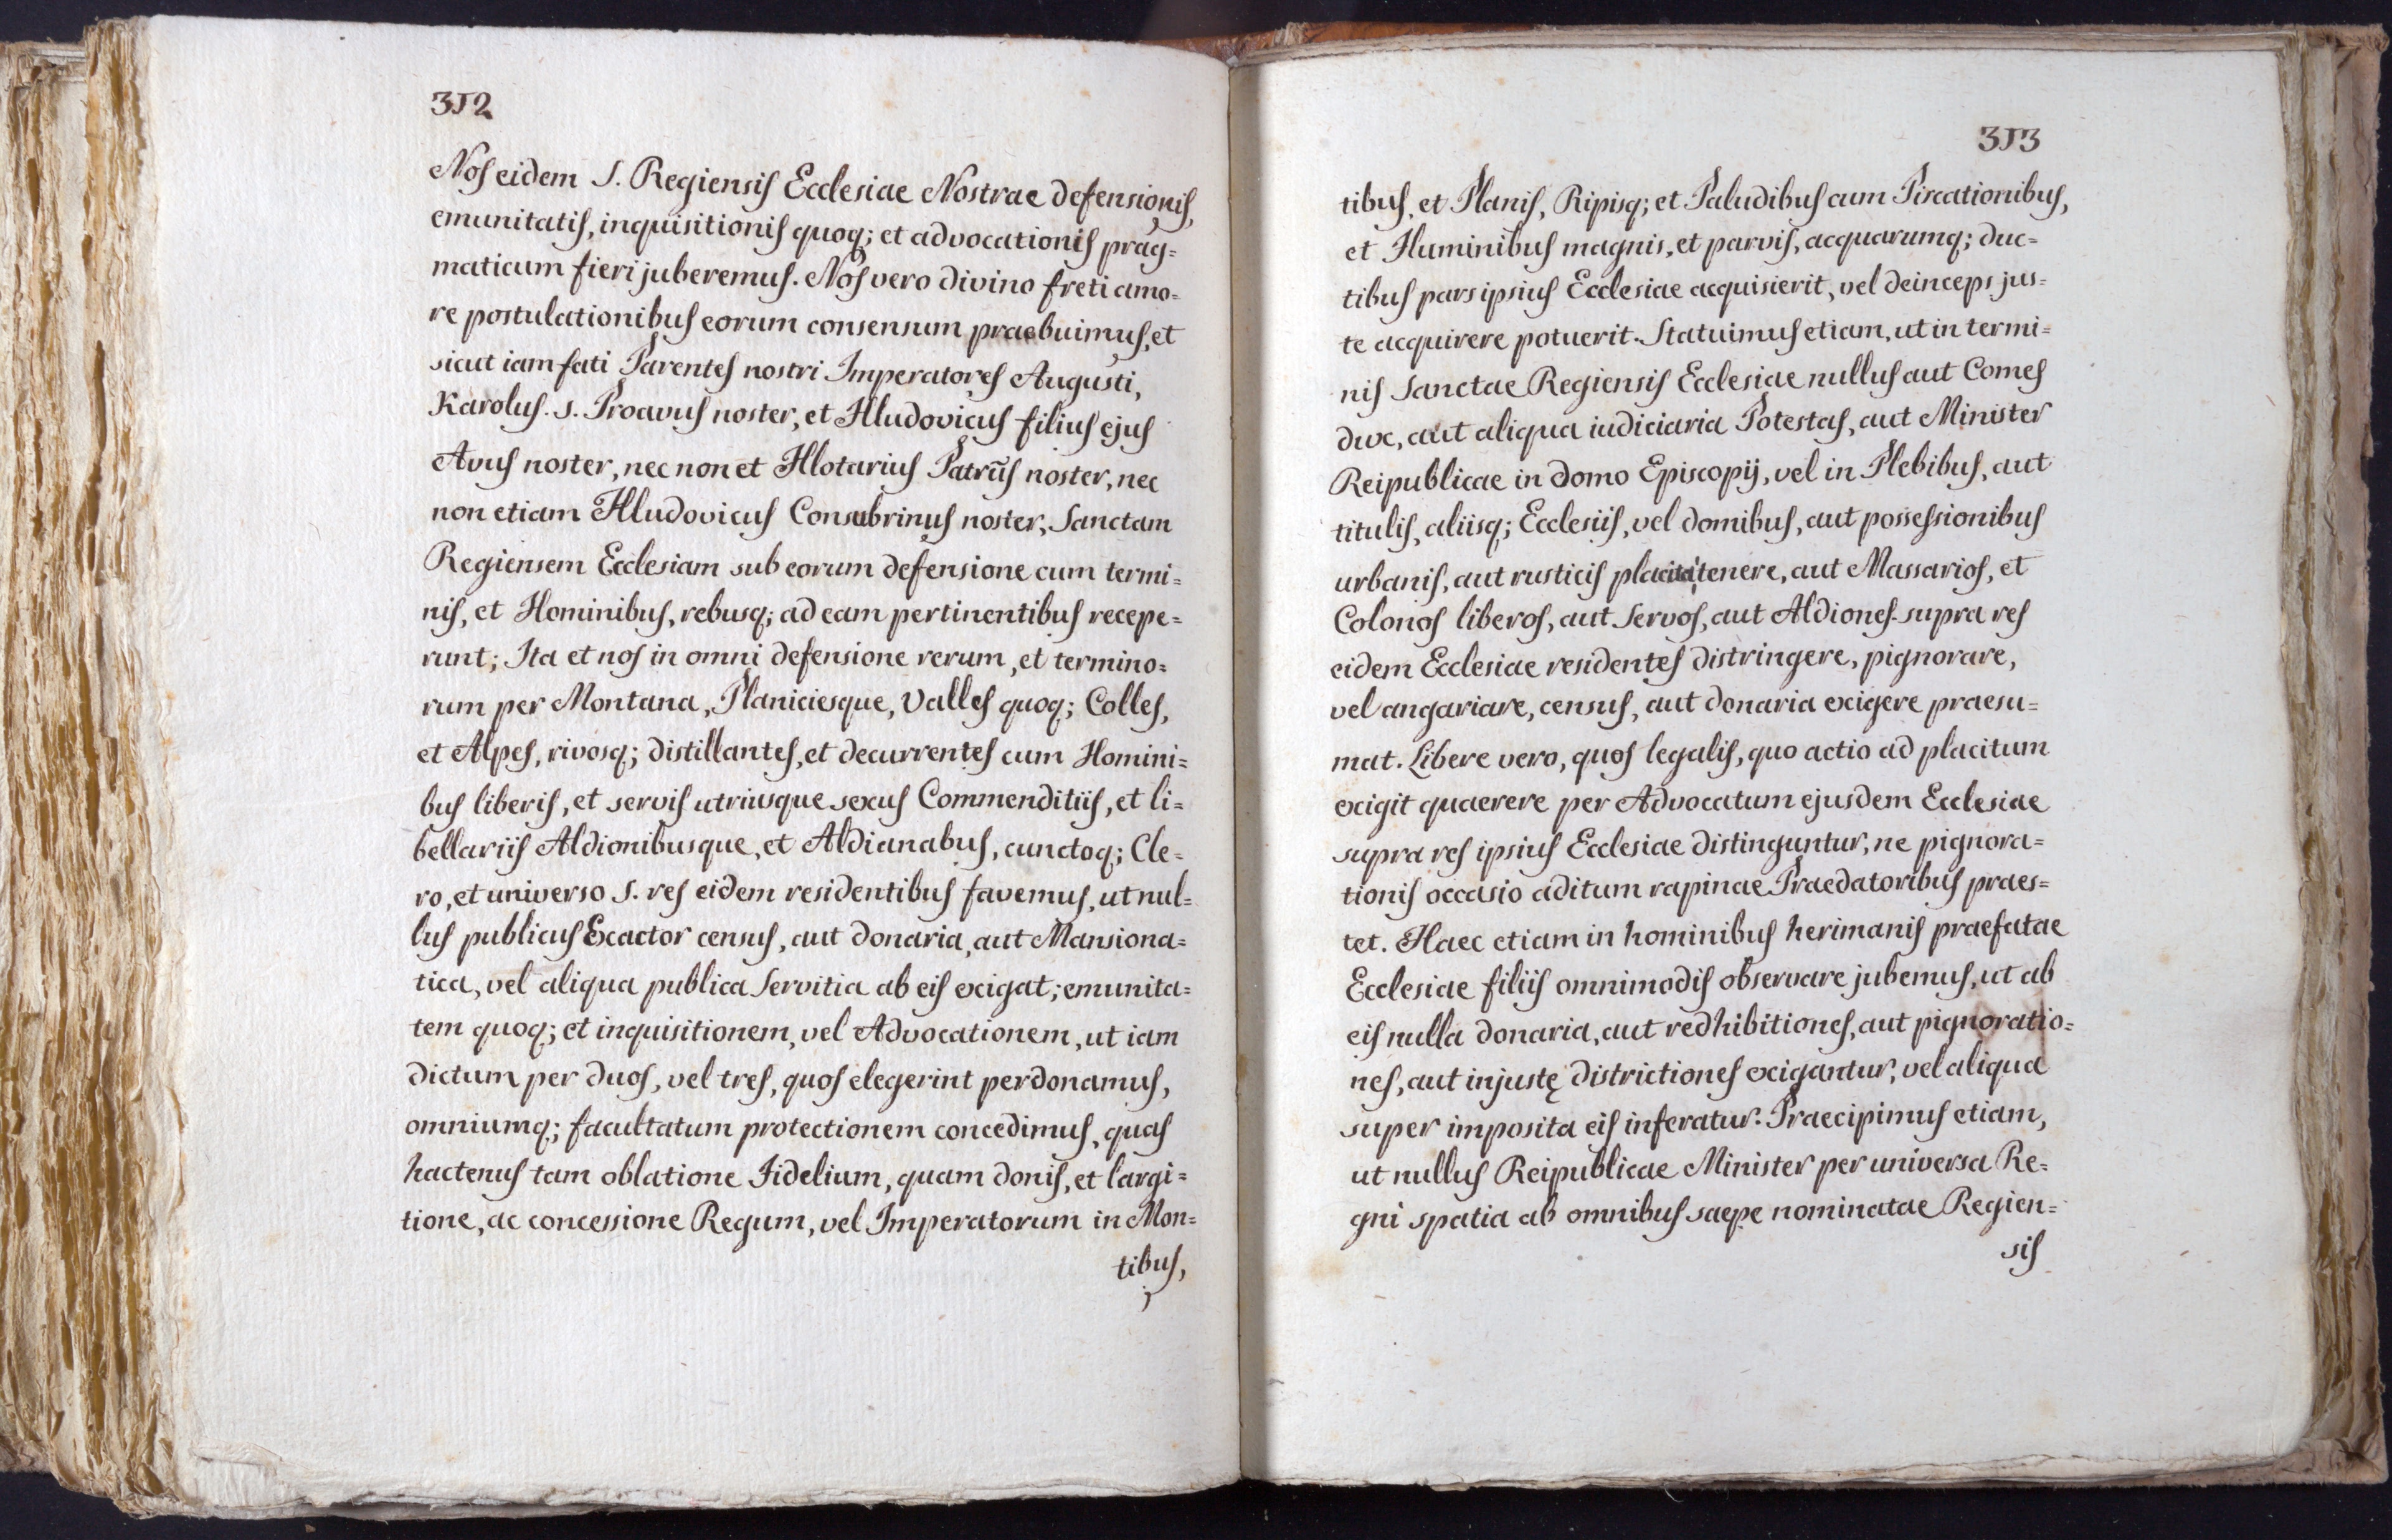 312
Nos eidem S. Regiensis Ecclesiae Nostrae defensionis,
emunitatis, inquisitionis quoq; et advocationis prag=
maticum fieri juberemus. Nos vero divino freti amo=
re postulationibus eorum consensum praebuimus, et
sicut iam fati Parentes nostri Imperatores Augusti,
Karolus. s. Proavus noster, et Hludovicus filius ejus
Avus noster, nec non et Hlotarius Patrũs noster, nec
non etiam Hludovicus Consubrinus noster, Sanctam
Regiensem Ecclesiam sub eorum defensione cum termi=
nis, et Hominibus, rebusq; ad eam pertinentibus recepe=
runt; Ita et nos in omni defensione rerum, et termino=
rum per Montana, Planiciesque, Valles quoq; Colles,
et Alpes, rivosq; distillantes, et decurrentes cum Homini=
bus liberis, et servis utriusque sexus Commenditiis, et li=
bellariis Aldionibusque, et Aldianabus, cunctoq; Cle=
ro, et universo S. res eidem residentibus favemus, ut nul=
lus publicus Exactor census, aut donaria, aut Mansiona=
tica, vel aliqua publica Servitia ab eis exigat; emunita=
tem quoq; et inquisitionem, vel Advocationem, ut iam
dictum per duos, vel tres, quos elegerint perdonamus,
omniumq; facultatum protectionem concedimus, quas
hactenus tam oblatione Fidelium, quam donis, et largi=
tione, ac concessione Regum, vel Imperatorum in Mon=
tibus,
313
tibus, et Planis, Ripisq; et Paludibus cum Piscationibus,
et Fluminibus magnis, et parvis, acquarumq; duc=
tibus pars ipsius Ecclesiae acquisierit, vel deinceps jus=
te acquirere potuerit. Statuimus etiam, ut in termi=
nis Sanctae Regiensis Ecclesiae nullus aut Comes
dux, aut aliqua iudiciaria Potestas, aut Minister
Reipublicae in domo Episcopij, vel in Plebibus, aut
titulis, aliisq; Ecclesiis, vel domibus, aut possessionibus
urbanis, aut rusticis placita tenere, aut Massarios, et
Colonos liberos, aut Servos, aut Aldiones supra res
eidem Ecclesiae residentes distringere, pignorare,
vel angariare, census, aut donaria exigere praesu=
mat. Libere vero, quos legalis, quo actio ad placitum
exigit quaerere per Advocatum ejusdem Ecclesiae
supra res ipsius Ecclesiae distinguntur, ne pignora=
tionis occasio aditum rapinae Praedatoribus praes=
tet. Haec etiam in hominibus herimanis praefatae
Ecclesiae filiis omnimodis observare jubemus, ut ab
eis nulla donaria, aut redhibitiones, aut pignoratio=
nes, aut injustę districtiones exigantur, vel aliqua
super imposita eis inferatur. Praecipimus etiam,
ut nullus Reipublicae Minister per universa Re=
gni spatia ab omnibus saepe nominatae Regien=
sis